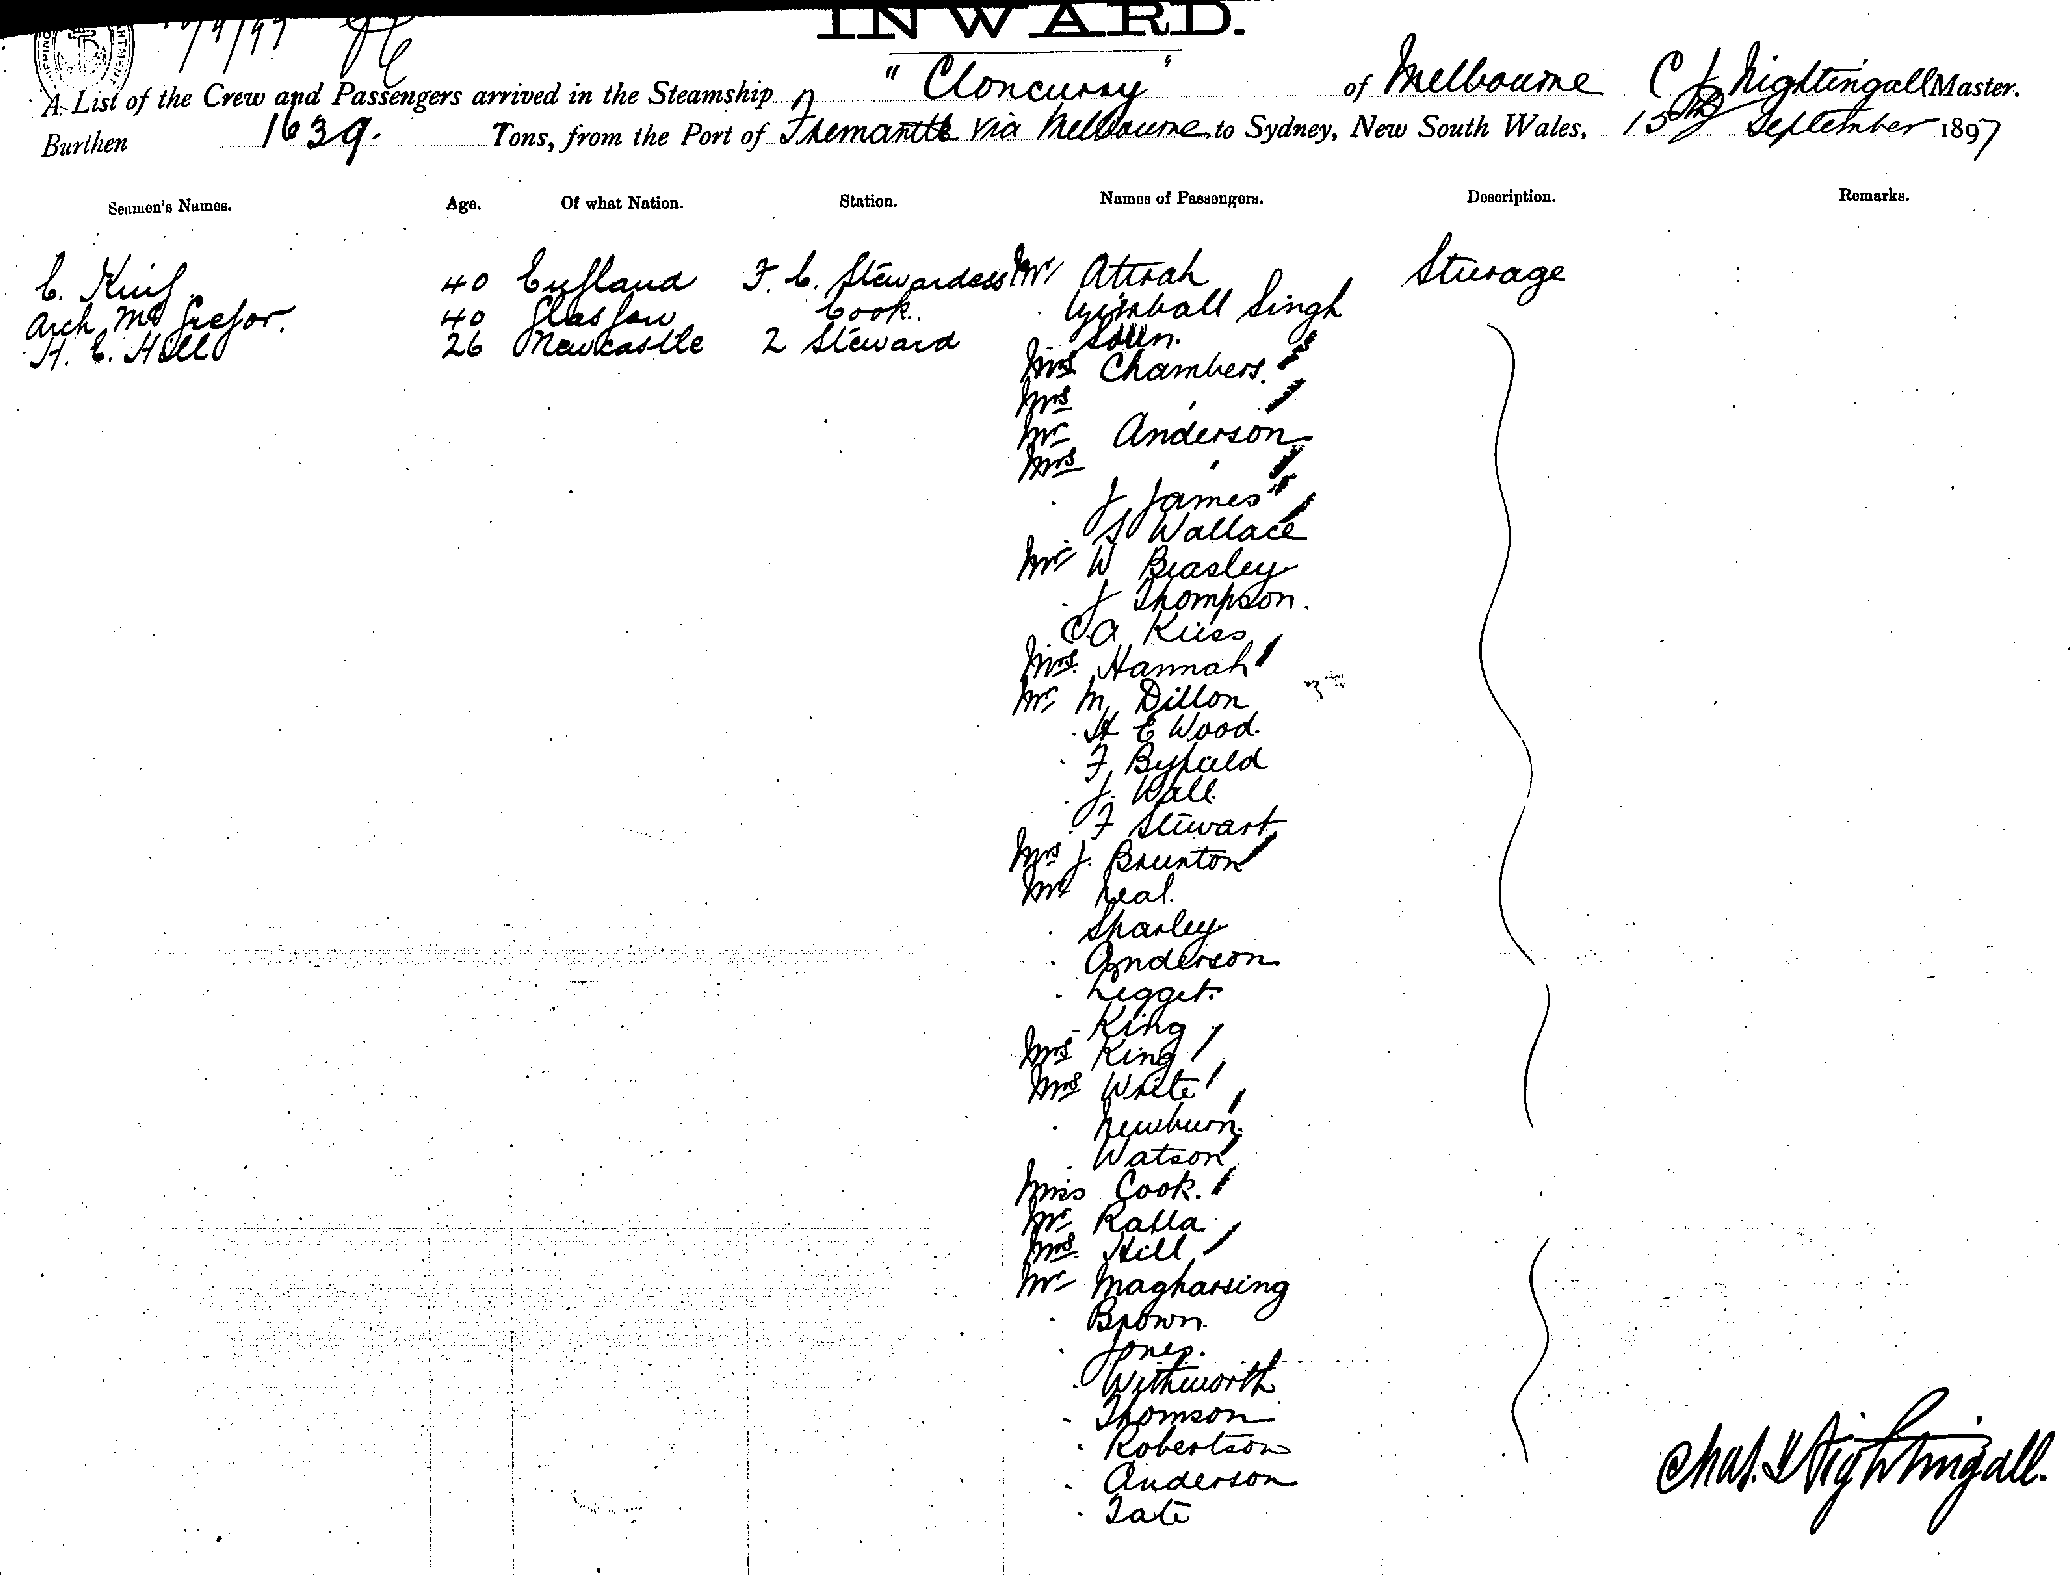 INWARD.
A List of the Crew and Passengers arrived in the Steamship "Cloncurry" of Melbourne C J Nightingall Master.
Burthen 1639. Tons, from the Port of Fremantle via Melbourne to Sydney, New South Wales, 15th September 1897
Seamen's Names. Age. Of what Nation. Station. Names of Passengers. Description. Remarks.
C. King 40 England F. C. Stewardess Mr Attrah Sturage
Arch McGregor. 40 Glasgow Cook. Singh
H. E. Hill 26 Newcastle 2 Steward
Mrs Chambers.
Mrs "
Mr Anderson
Mrs "
J James
S Wallace
Mr W Beasley
J Thompson.
C A Kuss
Mrs. Hannah
Mr M Dillon
H E Wood.
F Byfield
J. Wall
F Stewart
Mrs J. Brunton
Mr Neal.
Sharley
Anderson
Legget.
King
Mrs King
Mrs White
Newburn.
Watson
Miss Cook.
Mr Ralla
Mrs. Hill
Mr Magharsing
Brown
Jones.
Withworth
Thomson
Robertson
Anderson
Tate
Chas. J Nightingall.